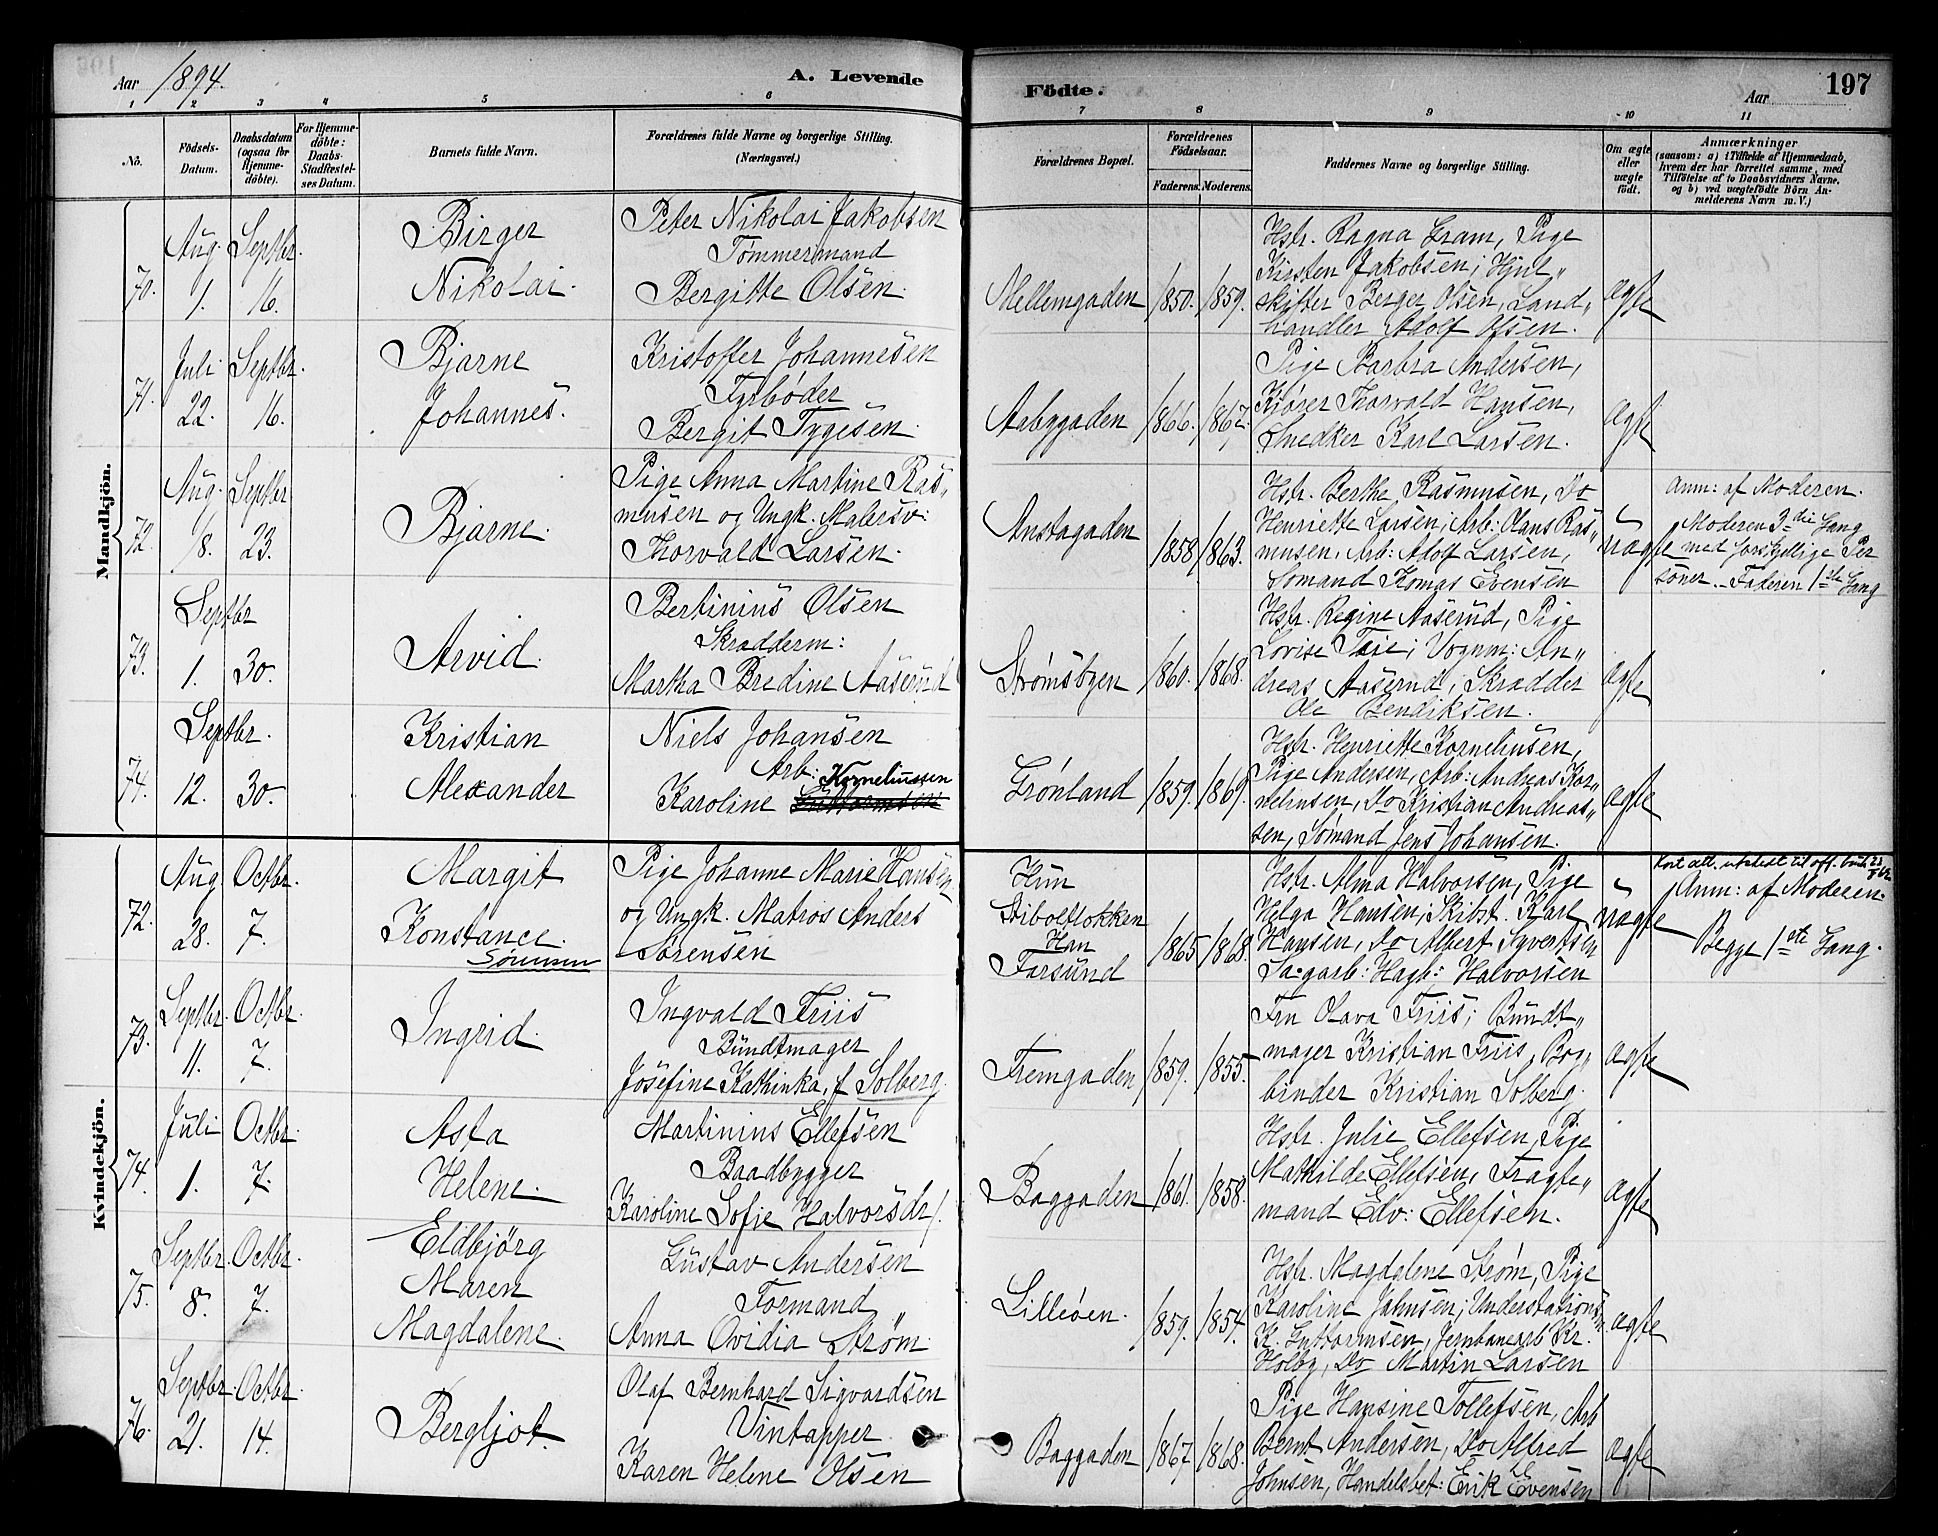 Aar 1894.
A. Levende
1 2 3 4 5 6
No.
Födsels-
Datum.
Daabsdatum
(ogsaa for
Hjemme-
döbte).
For Hjemme-
döbte:
Daabs-
Stadfæstel-
ses Datum.
Barnets fulde Navn.
Forældrenes fulde Navne og borgerlige Stilling.
(Næringsvei.)
Mandkjön.
70.
Aug. Septbr.
1. 16.
Birger
Nikolai.
Peter Nikolai Jakobsen
Tömmermand
Bergitte Olsen.
71.
Juli Septbr.
22. 16.
Bjarne
Johannes.
Kristoffer Johannesen
Fyrbøder
Bergit Tygesen.
72.
Aug. Septbr
18. 23.
Bjarne.
Pige Anna Martine Ras„
musen og Ungk. Malersv:
Thorvald Larsen.
73.
Septbr
1. 30.
Arvid.
Bertinius Olsen
Skrædderm:
Martha Bredine Aaserud
74.
Septbr.
12. 30.
Kristian
Alexander
Niels Johansen
Arb: Korneliussen
Karoline
Kvindekjön.
72.
Aug Octbr.
28. 7.
Margit
Konstance.
Sörensen
Pige Johanne Marie Hansen
og Ungk. Matros Anders
Sörensen
73.
Septbr. Octbr.
11. 7.
Ingrid.
Ingvald Friis
Bundtmager
Josefine Kathinka, f. Solberg.
74.
Juli Octbr.
1. 7.
Asta
Helene.
Martinius Ellefsen
Baadbygger
Karoline Sofie Halvorsdr.
75.
Septbr. Octbr.
8. 7.
Eldbjörg
Maren
Magdalene.
Gustav Andersen
Formand
Anna Ovidia Strøm.
76.
Septbr. Octbr.
21. 14.
Bergljot.
Olaf Bernhard Sigvardsen
Vintapper
Karen Helene Olsen
Födte.
Aar 197
7 8 9 10 11
Forældrenes Bopæl.
Forældrenes
Födselsaar.
Faderens. Moderens.
Faddernes Navne og borgerlige Stilling.
Om ægte
eller
uægte
födt.
Anmærkninger
(saasom: a) i Tilfælde af Hjemmedaab,
hvem der har forrettet samme, med
Tilföielse af to Daabsvidners Navne,
og b) ved uægtefödte Börn An-
melderens Navn m. V.)
Mellemgaden 1850. 1859.
Hstr. Ragna Gram, Pige
Kirsten Jakobsen; Hjul„
skifter Berger Olsen, Land„
handler Adolf Olsen.
ægte
Aabygaden 1866. 1867.
Pige Barbra Andersen,
Kjører Thorvald Hansen,
Snedker Karl Larsen.
ægte
1858 1863.
Hstr. Berthe Rasmusen, Do
Henriette Larsen; Arb: Olaus Ras„
musen, Arb: Adolf Larsen,
Sømand Thomas Evensen
uægte
Anm: af Moderen.
Moderen 3die Gang
med forskjellige Per
soner. Faderen 1ste Gang
Strømsbyen 1860. 1868.
Hstr. Regine Aaserud, Pige
Lovise; Vognm: An„
dreas Aaserud, Skrædder
Ole Bendiksen.
ægte
Grønland 1859. 1869.
Hstr. Henriette Korneliusen,
Pige Andersen, Arb: Andreas Kor„
neliusen, Do Kristian Andreas„
sen, Sömand Jens Johansen.
ægte
Hun
Stibolfløkken
Han
Farsund
1865 1868.
Hstr. Alma Halvorsen, Pige
Helga Hansen; Skibst. Karl
Hansen, Do Albert Syvertsen
Sagarb: Hagb: Halvorsen
uægte
Kort att. utstedt til off. bruk
Anm: af Moderen.
Begge 1ste Gang.
Fremgaden 1859. 1855.
Fru Olava Friis; Bundt„
mager Kristian Friis, Bog„
binder Kristian Solberg.
ægte
Baggaden 1861. 1858.
Hstr. Julie Ellefsen, Pige
Mathilde Ellefsen, Fragte„
mand Edv: Ellefsen.
ægte
Lilleøen. 1859. 1854.
Hstr. Magdalene Strøm, Pige
Karoline Jahnsen; Understations
K. Guttormsen, Jernbanearb Kr.
Holby, Do Martin Larsen
ægte
Baggaden 1867 1868.
Pige Hansine Tollefsen, Arb
Bernt Andersen, Do Alfred
Johnsen, Handelsbet: Erik Evensen
ægte